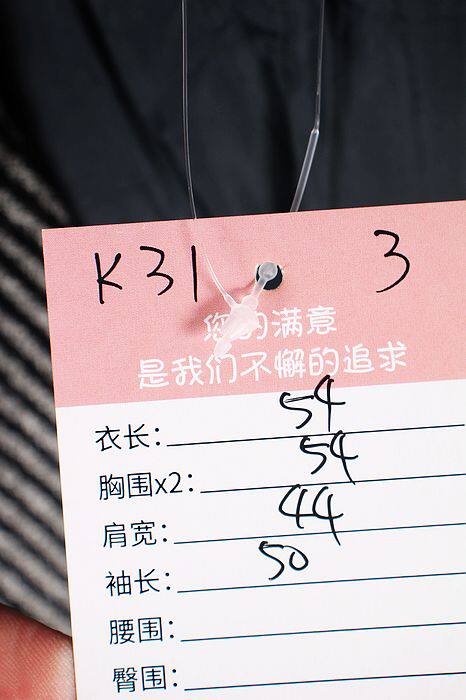 K31 3
您的满意
是我们不懈的追求
衣长: 54
胸围x2: 54
肩宽: 44
袖长: 50
腰围:
臀围: